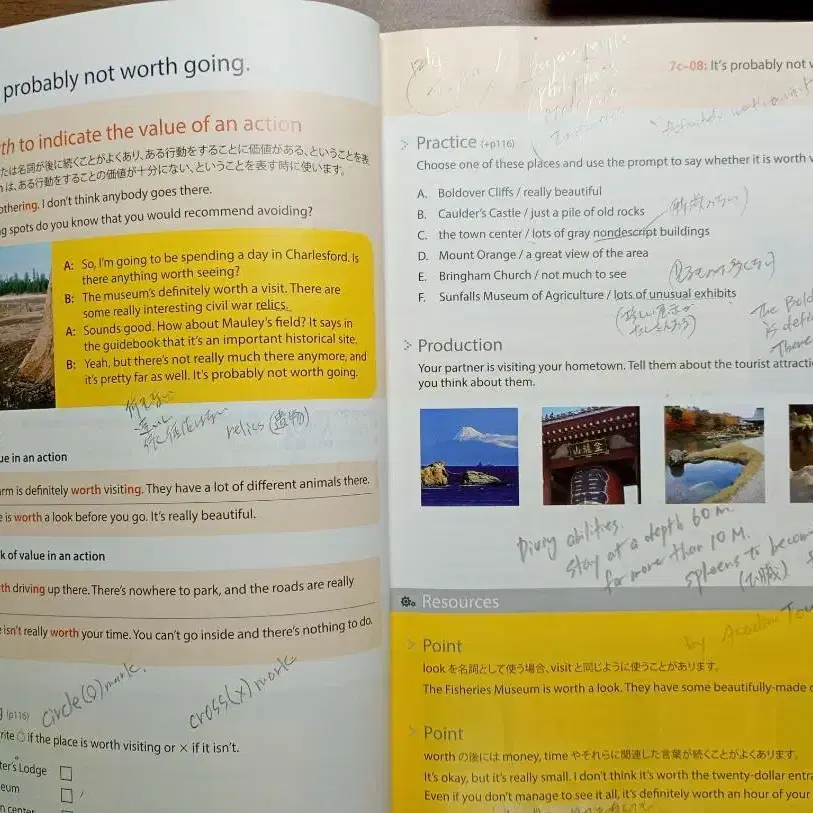 probably not worth going.
th to indicate the value of an action
たは名詞が後に続くことがよくあり、ある行動をすることに価値がある、ということを表
は、ある行動をすることの価値が十分にない、ということを表す時に使います。
othering. I don't think anybody goes there.
g spots do you know that you would recommend avoiding?
A: So, I'm going to be spending a day in Charlesford. Is
there anything worth seeing?
B: The museum's definitely worth a visit. There are
some really interesting civil war relics.
A: Sounds good. How about Mauley's field? It says in
the guidebook that it's an important historical site.
B: Yeah, but there's not really much there anymore, and
it's pretty far as well. It's probably not worth going.
relics (遺物)
ue in an action
rm is definitely worth visiting. They have a lot of different animals there.
e is worth a look before you go. It's really beautiful.
k of value in an action
th driving up there. There's nowhere to park, and the roads are really
e isn't really worth your time. You can't go inside and there's nothing to do.
circle(O)mark.
cross(x)mark
g (p116)
rite ○ if the place is worth visiting or × if it isn't.
ter's Lodge
eum
n center
7c-08: It's probably not w
Practice (+p116)
Choose one of these places and use the prompt to say whether it is worth v
A. Boldover Cliffs / really beautiful
B. Caulder's Castle / just a pile of old rocks
C. the town center / lots of gray nondescript buildings
D. Mount Orange / a great view of the area
E. Bringham Church / not much to see
F. Sunfalls Museum of Agriculture / lots of unusual exhibits
The Bold
is defi
There
Production
Your partner is visiting your hometown. Tell them about the tourist attracti
you think about them.
Diving abilities.
stay at a depth 60 m.
for more than 10 M.
spleens to becom
Resources
Point
look を名詞として使う場合、visit と同じように使うことがあります。
The Fisheries Museum is worth a look. They have some beautifully-made
Point
worth の後には money, time やそれらに関連した言葉が続くことがよくあります。
It's okay, but it's really small. I don't think it's worth the twenty-dollar entra
Even if you don't manage to see it all, it's definitely worth an hour of your